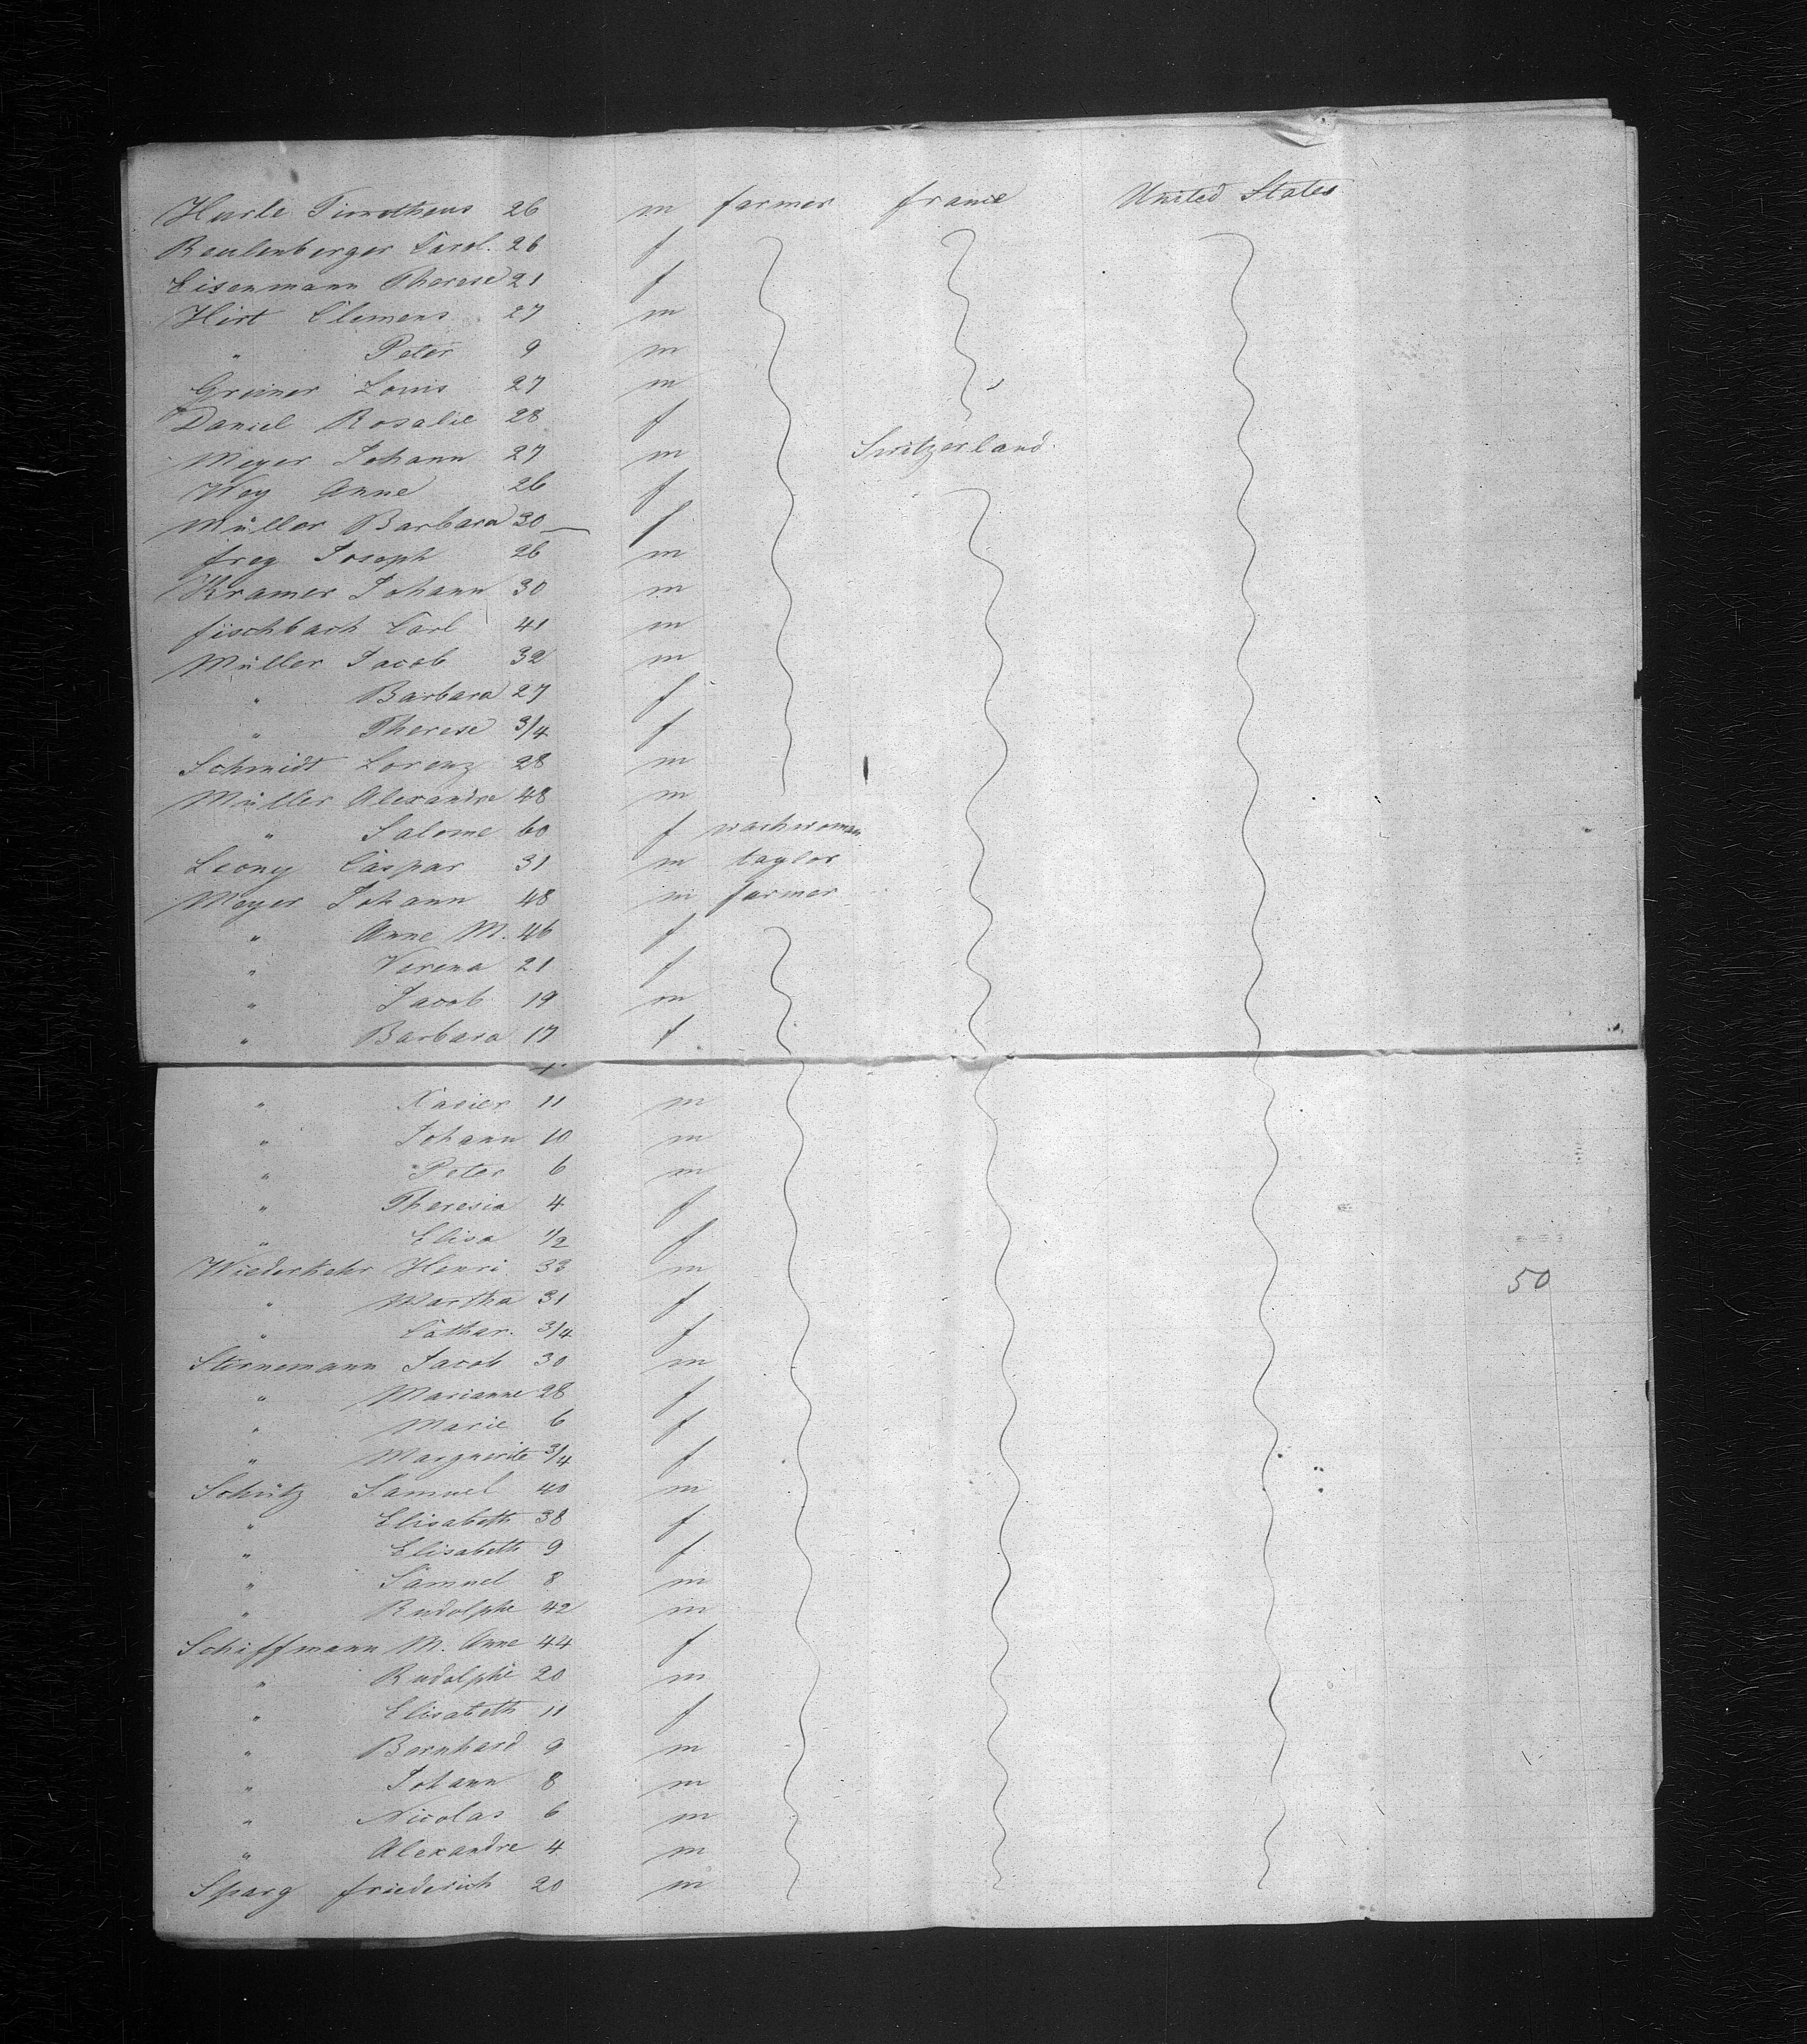 Hurle Timotheus 26 m farmer france United States
Reulenberger Carol. 26 f
Eisenmann Therese 21 f
Hirt Clemens 27 m
" Peter 9 m
Greiner Louis 27 m
Daniel Rosalie 28 f
Meyer Johann 27 m Switzerland.
Wey Anne 26 f
Müller Barbara 30 f
frey Joseph 26 m
Kramer Johann 30 m
fischbach Carl 41 m
Müller Jacob 32 m
" Barbara 27 f
" Therese 3/4 f
Schmidt Lorenz 28 m
Müller Alexandre 48 m
" Salome 60 f washwoman
Leony Caspar 31 m taylor
Meyer Johann 48 m farmer
" Anne M. 46 f
" Verena 21 f
" Jacob 19 m
" Barbara 17 f
" Xavier 11 m
" Johann 10 m
" Peter 6 m
" Theresia 4 f
" Elisa 1/2 f
Wiederkehr Henri 33 m 50
" Martha 31 f
" Cathar. 3/4 f
Stirnemann Jacob 30 m
" Marianne 28 f
" Marie 6 f
" Marguerite 3/4 f
Schütz Samuel 40 m
" Elisabeth 38 f
" Elisabeth 9 f
" Samuel 8 m
" Rudolphe 42 m
Schiffmann M. Anne 44 f
" Rudolphe 20 m
" Elisabeth 11 f
" Bernhard 9 m
" Johann 8 m
" Nicolas 6 m
" Alexandre 4 m
Sparg friederich 20 m